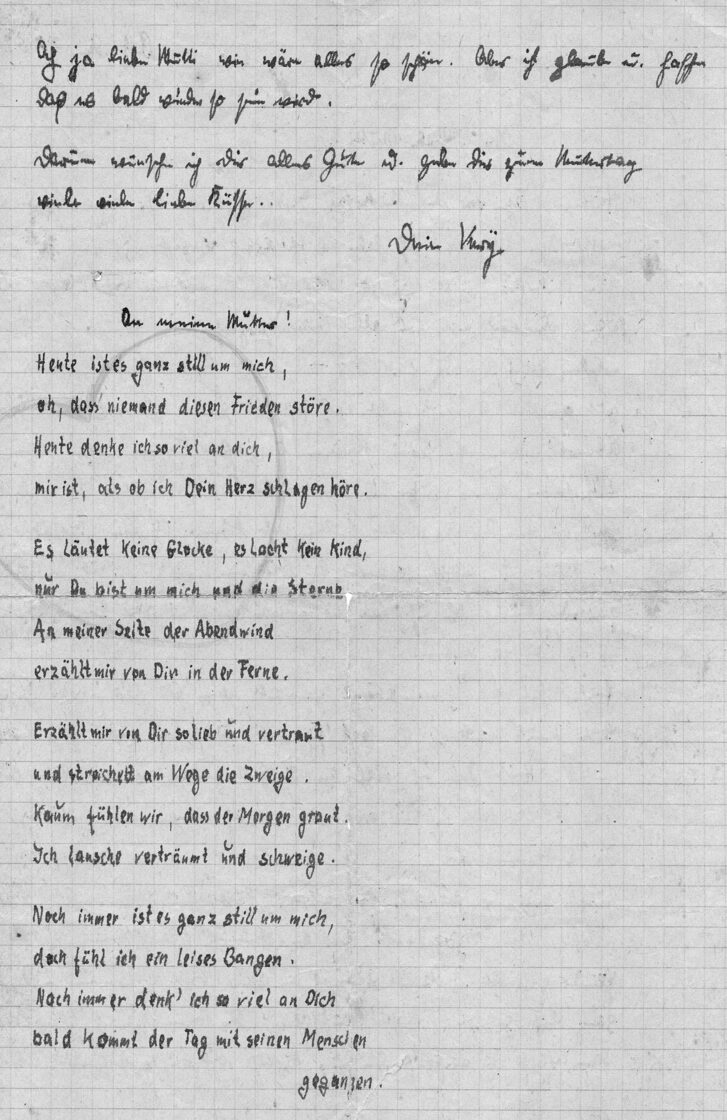 Ach ja liebe Mutti wie wäre alles so schön. Aber ich glaube u. hoffe
daß es bald wieder so sein wird.
Darum wünsche ich Dir alles Gute u. gebe Dir zum Muttertag
viele viele liebe Küsse..
Dein
An meine Mutter!
Heute ist es ganz still um mich,
oh, dass niemand diesen Frieden störe.
Heute denke ich so viel an dich,
mir ist, als ob ich Dein Herz schlagen höre.
Es läutet keine Glocke, es lacht kein Kind,
nur Du bist um mich und die Sterne
An meiner Seite der Abendwind
erzählt mir von Dir in der Ferne.
Erzählt mir von Dir so lieb und vertraut
und streichelt am Wege die Zweige.
Kaum fühlen wir, dass der Morgen graut.
Ich lausche verträumt und schweige.
Noch immer ist es ganz still um mich,
doch fühl ich ein leises Bangen.
Noch immer denk' ich so viel an Dich
bald kommt der Tag mit seinen Menschen
gegangen.